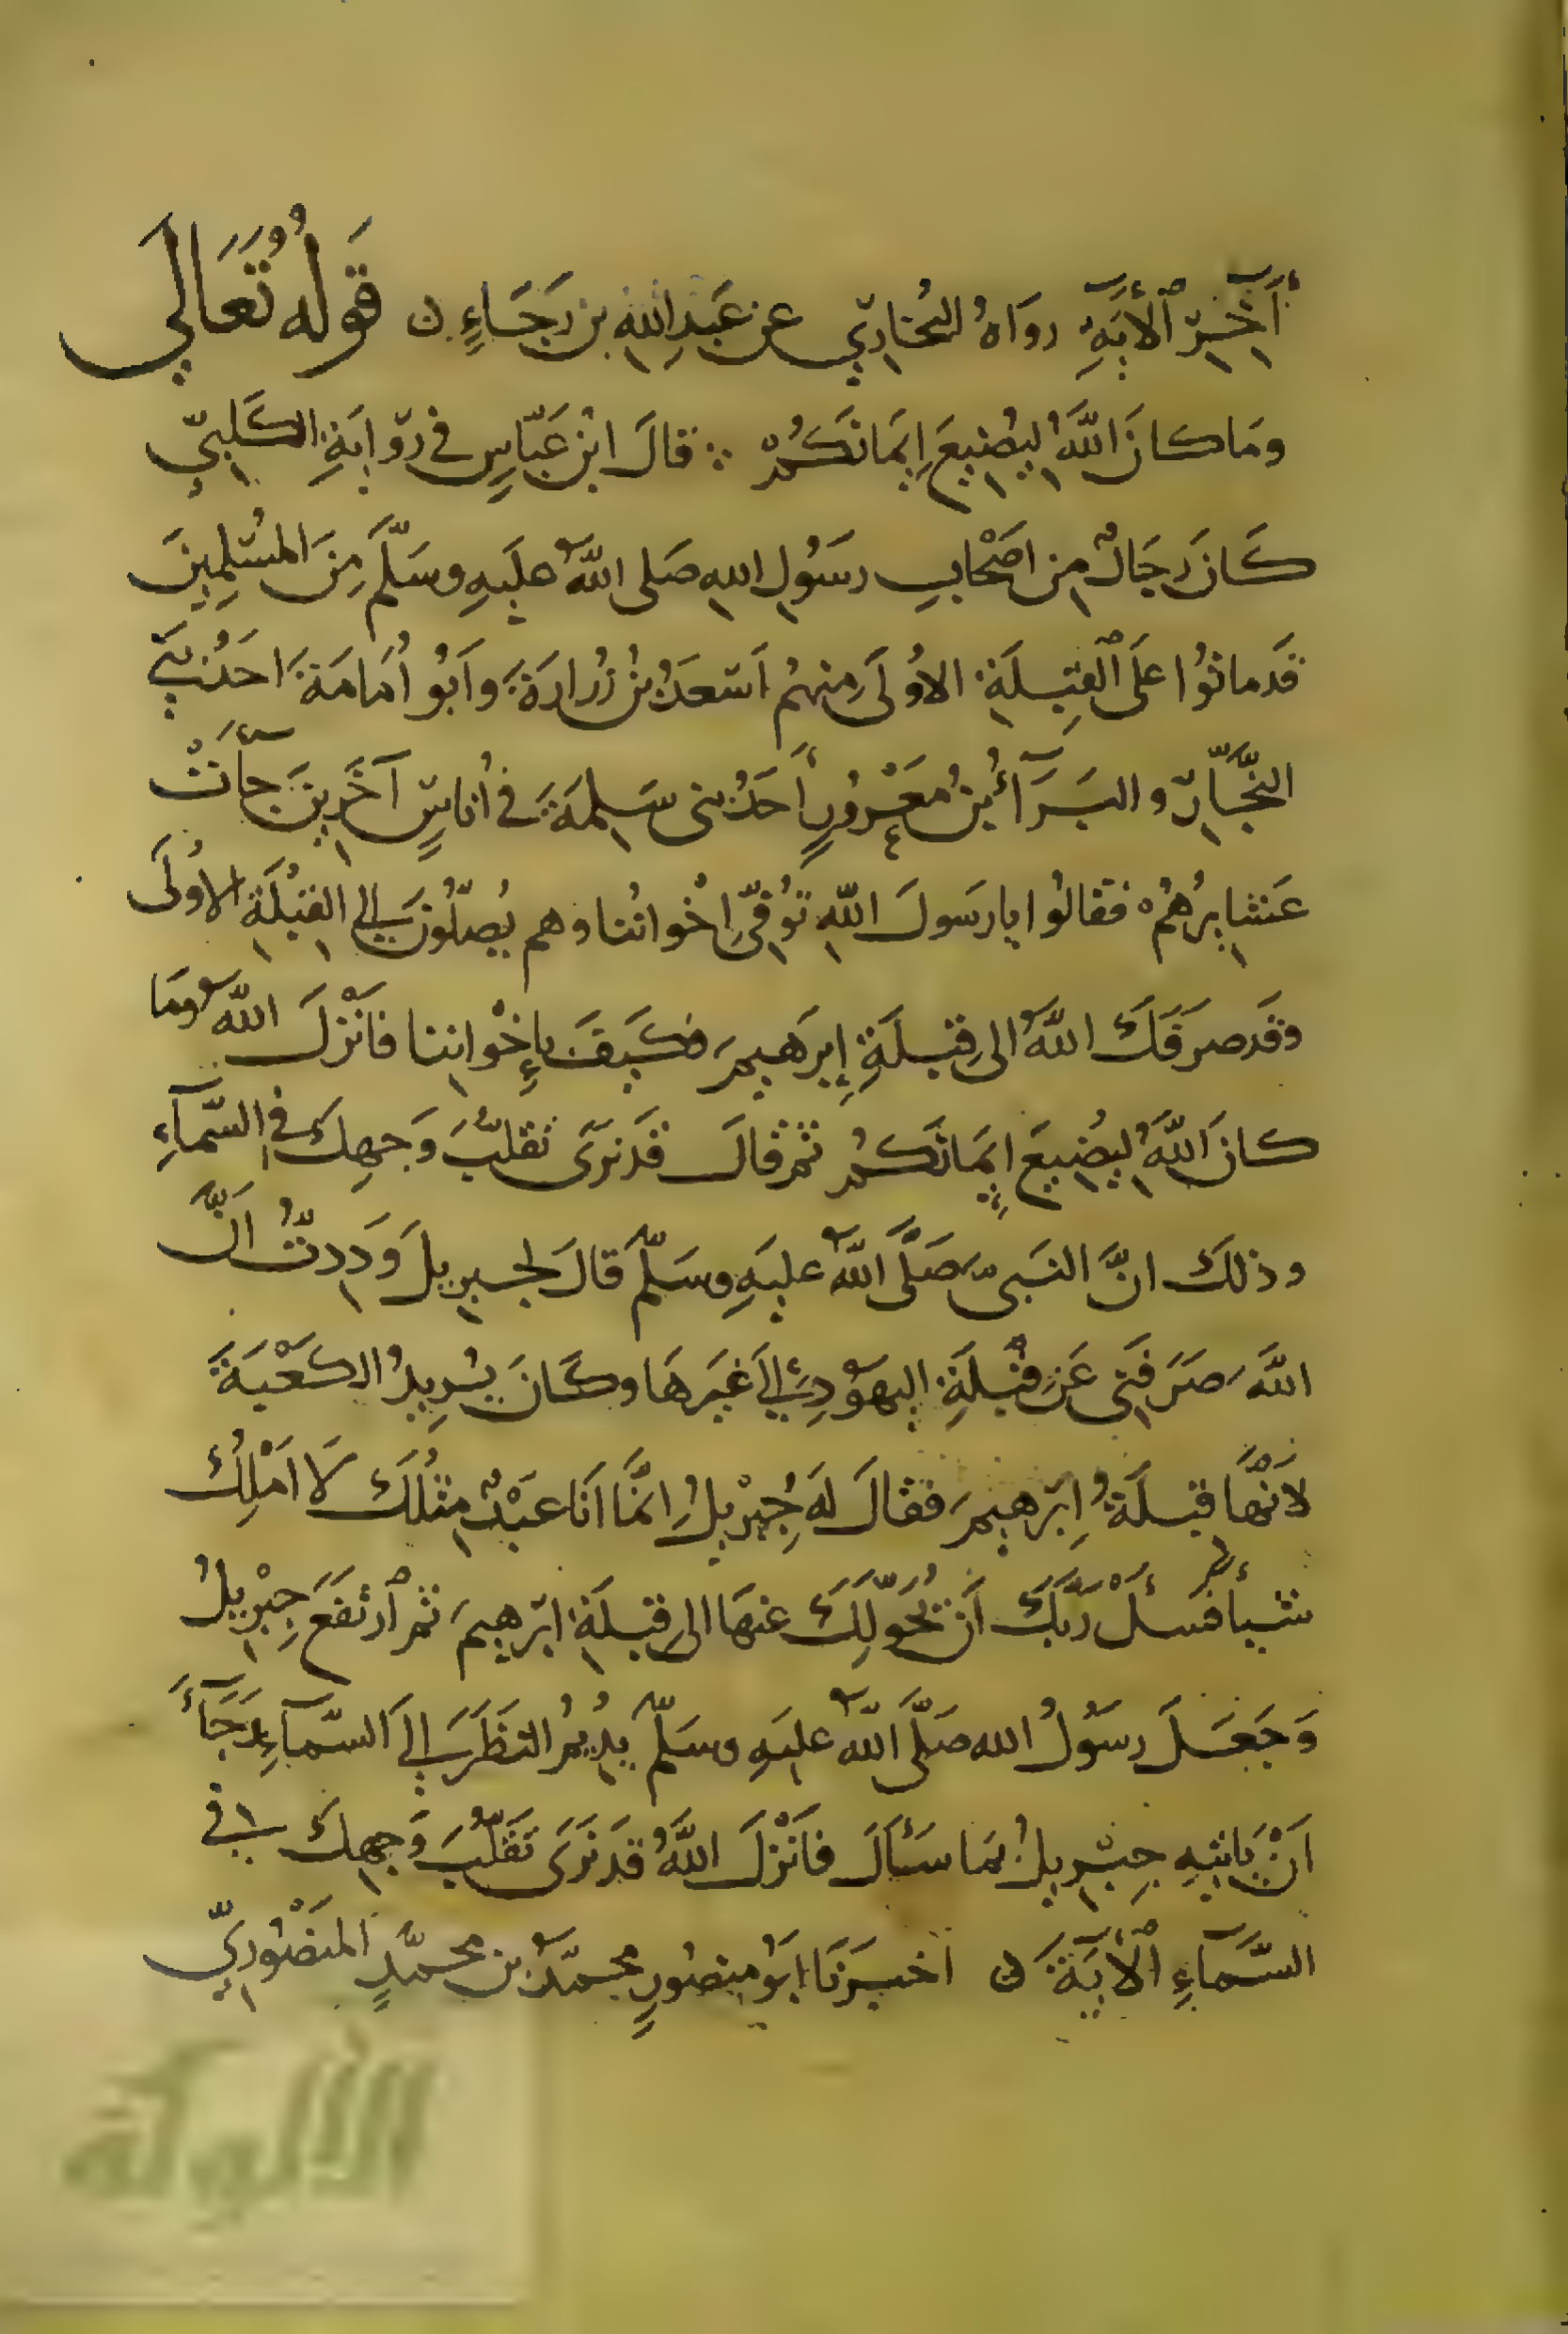 آخِرِ ٱلْأَيَةِ رواهُ البُخَارِيّ عن عَبدِ اللهِ بن رَجَاءٍ ن قَولهُ تَعَالَي
ومَا كانَ اللهُ لِيُضيعَ إِيمَانَكُمْ ۞ قالَ ابْن عَبّاسٍ في رِوايَةِ الكَلبيّ
كَانَ رِجَالٌ مِن اصْحَابِ رسَوُلِ الله صَلى اللهُ عليَهِ وسَلَّمَ مِنَ المسُلِمِينَ
قَد ماتوُا علَى ٱلقِبلَةِ الاوُلَى مِنهُم اَسْعَدُ بنُ زُرارَةَ وأَبوُ أُمَامَةَ اَحَدُ بَنِي
النَجَّارِ والبَرَآءُ بنُ مَعْرُورٍ أَحَدُ بنى سَلِمَةَ في أُناسٍ آخَرِينَ جآءَتْ
عَشَايِرُهُم فقالوُا يا رسَولَ اللهِ تُوُفِّيَ اِخْوانُنا وهم يُصَلّونَ إلي القِبْلَةِ الاوُلَى
وقَد صرَفَكَ اللهُ الى قِبلَةِ إبرَهيمَ فكَيَفَ بإِخْواننا فانْزَلَ اللهُ ومَا
كانَ اللهُ لِيُضِيعَ إيمَانَكُم ثم قالَ قَد نَرَى تَقَلُّبَ وَجهِكَ في السَّمآءِ
وذلكَ انَّ النَبىَّ صَلَّى اللهُ عليَهِ وسَلَّمَ قالَ لجبرِيلَ وَدِدتُ اَنَّ
اللهَ صَرَفَنِى عَن قِبْلَةِ اليهَوُدِ إِلي غَيرِهَا وكَانَ يُرِيدُ الكَعْبَةَ
لانَّهَا قبلَةُ اِبْرَهيمَ فقالَ لَهُ جِبْرِيلُ اِنمَّا انَا عبَدٌ مِثْلُكَ لَا اَمْلِكُ
شيأً فسَلْ رَبَّكَ أَن يُحَوِّلَكَ عَنهَا الى قِبلَةِ ابْرَهيمَ ثم ٱرتَفعَ جِبْرِيلُ
وَجَعَلَ رسَوُلُ الله صَلَّى اللهُ عليَهِ وسَلَّمَ يدُيِمُ النَظَرَ إِلي السَّمآءِ رَجَآءَ
اَنْ يَاتيَهِ جِبْرِيلُ بمَا سَأَلَ فانْزَلَ اللهُ قَد نَرَى تَقَلُّبَ وَجهِكَ في
السَّمَآءِ ٱلْأيَةَ ن اَخبرَنَا ابَوُ منصُورٍ محمدُ بن محمدٍ المنَصُوريّ
الألوكة